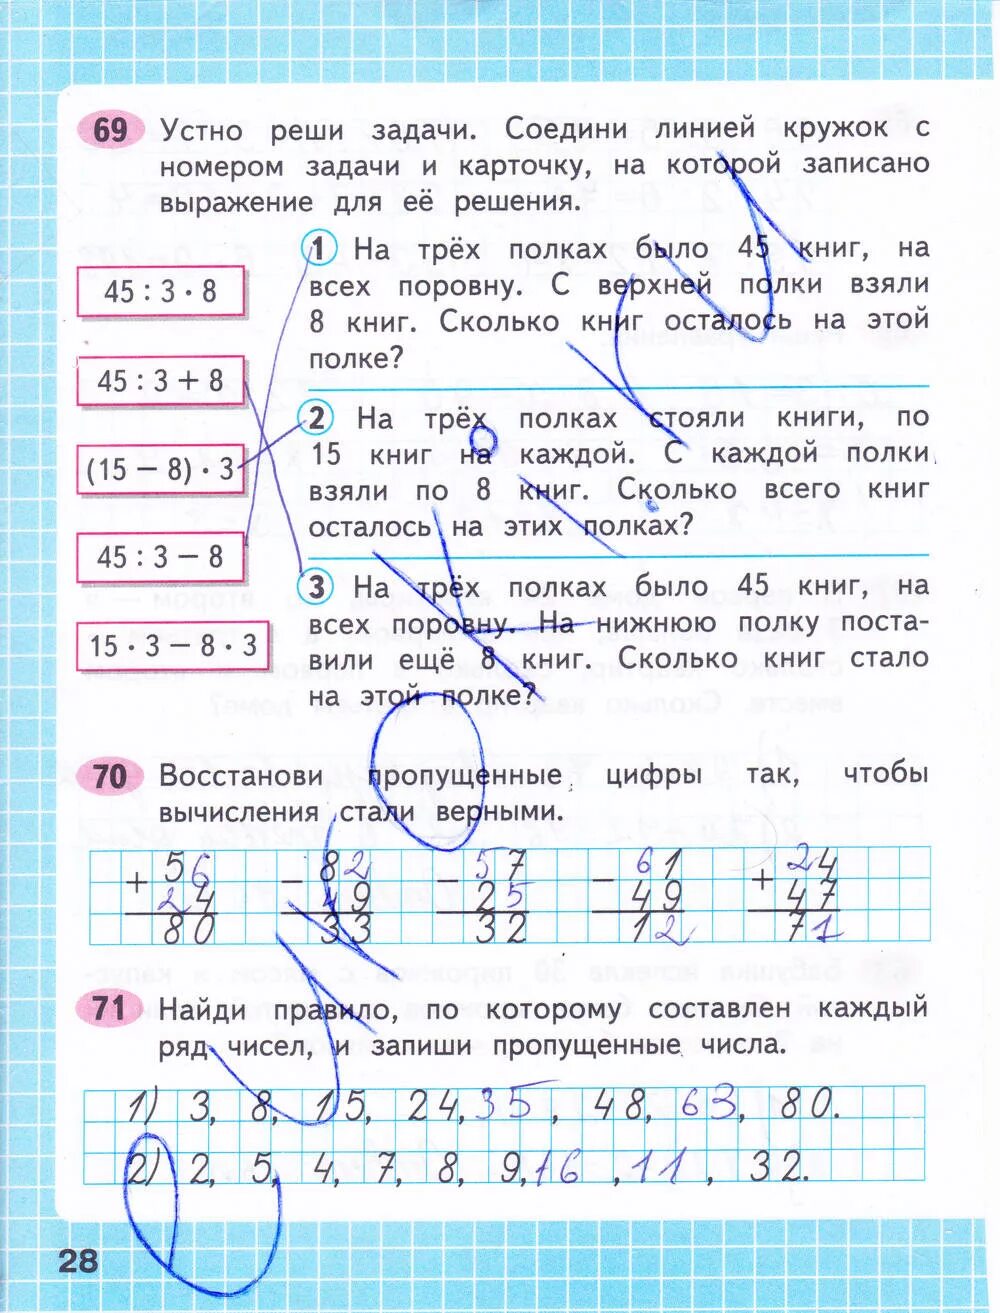 69 Устно реши задачи. Соедини линией кружок с
номером задачи и карточку, на которой записано
выражение для её решения.
45 : 3 · 8
45 : 3 + 8
(15 − 8) · 3
45 : 3 − 8
15 · 3 − 8 · 3
1 На трёх полках было 45 книг, на
всех поровну. С верхней полки взяли
8 книг. Сколько книг осталось на этой
полке?
2 На трёх полках стояли книги, по
15 книг на каждой. С каждой полки
взяли по 8 книг. Сколько всего книг
осталось на этих полках?
3 На трёх полках было 45 книг, на
всех поровну. На нижнюю полку поста-
вили ещё 8 книг. Сколько книг стало
на этой полке?
70 Восстанови пропущенные цифры так, чтобы
вычисления стали верными.
+ 56 − 82 − 57 − 61 + 24
24 49 25 49 47
80 33 32 12 71
71 Найди правило, по которому составлен каждый
ряд чисел, и запиши пропущенные числа.
1) 3, 8, 15, 24, 35, 48, 63, 80.
2) 2, 5, 4, 7, 8, 9, 16, 11, 32.
28